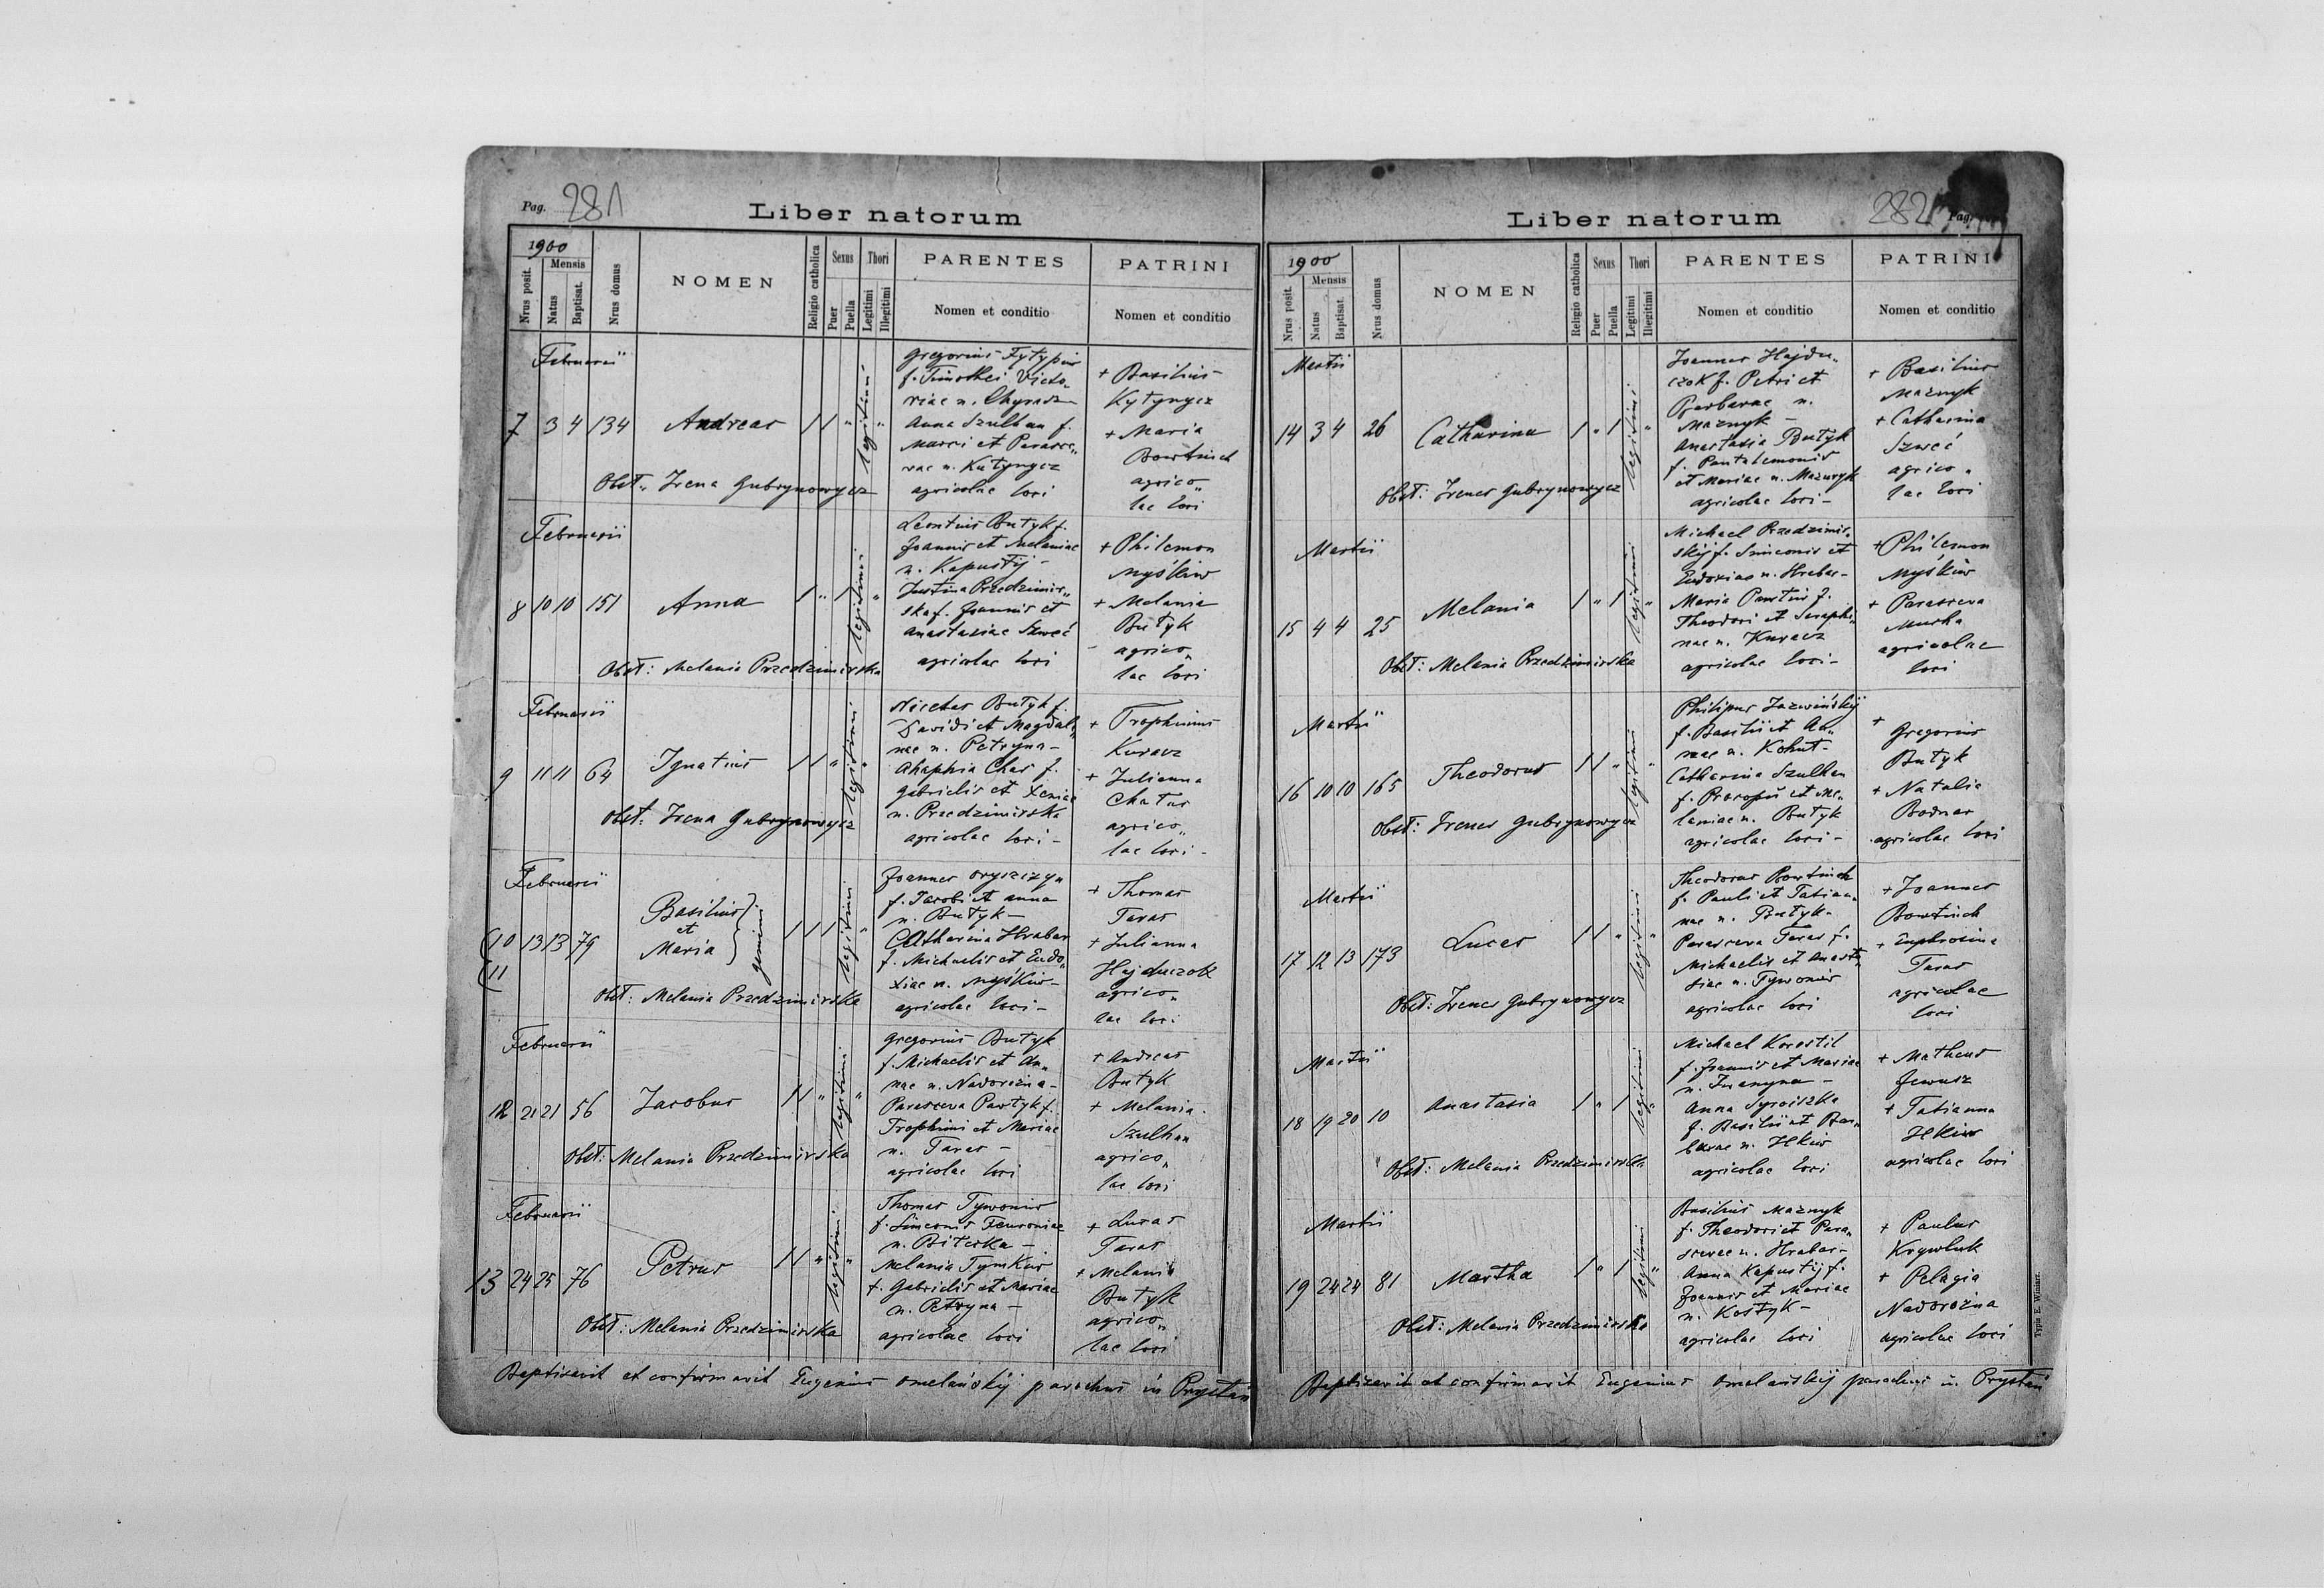 Pag. 281
Liber natorum
1900
Nrus posit.
Mensis
Natus
Baptisat.
Nrus domus
NOMEN
Religio catholica
Sexus
Puer
Puella
Thori
Legitimi
Illegitimi
PARENTES
Nomen et conditio
PATRINI
Nomen et conditio
Februarii
7 3 4 134 Andreas
legitimi
Obst: Irena Gubrynowycz
Gregorius
f. Timothei Victo„
riae n.
Anna Szulhan f.
Marci et Parasce„
vae n. Kutyngcz
agricolae loci
+ Basilius
Kytyngcz
+ Maria
Bowtuch
agrico„
lae loci
Februarii
8 10 10 151 Anna
legitimi
Obst: Melania Przedzimirska
Leontius Butyk f.
Joannis et Melaniae
n. Kapustij –
Justina Przedzimir„
ska f. Joannis et
Anastasiae Szweć
agricolae loci
+ Philemon
Myśkiw
+ Melania
Butyk
agrico„
lae loci
Februarii
9 11 11 64 Ignatius
legitimi
Obst: Irena Gubrynowycz
Nicetas Butyk f.
Davidi et Magdale„
nae n. Petryna –
Ahaphia Chas f.
Gabrielis et Xeniae
n. Przedzimirska
agricolae loci –
+ Trophimus
Kuracz
+ Julianna
Chatus
agrico„
lae loci –
Februarii
10
11
13 13 79 Basilius
et
Maria
gemini
legitimi
Obst: Melania Przedzimirska
Joannes Oryszczyn
f. Jacobi et Anna
n. Butyk –
Catharina Hrabar
f. Michaelis et Eudo„
xiae n. Myśkiw –
agricolae loci –
+ Thomas
Taras
+ Julianna
Hajduczok
agrico„
lae loci
Februarii
12 21 21 56 Jacobus
legitimi
Obst: Melania Przedzimirska
Gregorius Butyk
f. Michaelis et An„
nae n. Nadorożna –
Parasceva Pawtyk f.
Trophimi et Mariae
n. Taras –
agricolae loci
+ Andreas
Butyk
+ Melania
Szulhan
agrico„
lae loci
Februarii
13 24 25 76 Petrus
legitimi
Obst: Melania Przedzimirska
Thomas Tywoniw
f. Simeonis Fevroniae
n. Biteska –
Melania Tymkiw
f. Gabrielis et Mariae
n. Petryna –
agricolae loci
+ Lucas
Taras
+ Melania
Butyk
agrico„
lae loci
Baptisavit et confirmavit Eugenius Omelańskij parochus in Prystań
282
Pag.
Liber natorum
1900
Nrus posit.
Mensis
Natus
Baptisat.
Nrus domus
NOMEN
Religio catholica
Sexus
Puer
Puella
Thori
Legitimi
Illegitimi
PARENTES
Nomen et conditio
PATRINI
Nomen et conditio
Martii
14 3 4 26 Catharina
legitimi
Obst: Irenes Gubrynowycz
Joannes Hajdu„
czok f. Petri et
Barbarae n.
Maznyk –
Anastasia Butyk
f. Pantalemonis
et Mariae n. Maznyk
agricolae loci –
+ Basilius
Maznyk
+ Catharina
Szweć
agrico„
lae loci
Martii
15 4 4 25 Melania
legitimi
Obst: Melania Przedzimirska
Michael Przedzimir„
skij f. Simeonis et
Eudoxiae n. Hrabar –
Maria Pawtiuś f.
Theodori et Seraphi„
nae n. Kuracz
agricolae loci –
+ Philemon
Myśkiw
+ Parasceva
Mucha
agricolae
loci
Martii
16 10 10 165 Theodorus
legitimi
Obst: Irenes Gubrynowycz
Philipus Jazwińskij
f. Basilii et An„
nae n. Kohut –
Catharina Szulhan
f. Procopii et Me„
laniae n. Butyk
agricolae loci –
+
Gregorius
Butyk
+ Natalia
Bodnar
agricolae loci
Martii
17 12 13 173 Lucas
legitimi
Obst: Irenes Gubrynowycz
Theodorus Bowtuch
f. Pauli et Tatian„
nae n. Butyk –
Parasceva Taras f.
Michaelis et Anasta„
siae n. Tywoniw
agricolae loci
+ Joannes
Bowtuch
+ Euphrosina
Taras
agricolae
loci
Martii
18 19 20 10 Anastasia
legitimi
Obst: Melania Przedzimirska
Michael Korostil
f. Joannis et Mariae
n. Iwanyna –
Anna Syroiszka
f. Basilii et Bar„
barae n. Ilkiw
agricolae loci
+ Matheus
Jewusz
+ Tatianna
Ilkiw
agricolae loci
Martii
19 24 24 81 Martha
legitimi
Obst: Melania Przedzimirska
Basilius Maznyk
f. Theodori et Para„
scevae n. Hrabar –
Anna Kapustij f.
Joannis et Mariae
n. Kostyk –
agricolae loci
+ Paulus
Krywluk
+ Pelagia
Nadorożna
agricolae loci
Baptisavit et confirmavit Eugenius Omelańskij parochus in Prystań
Typis E. Winiarz.